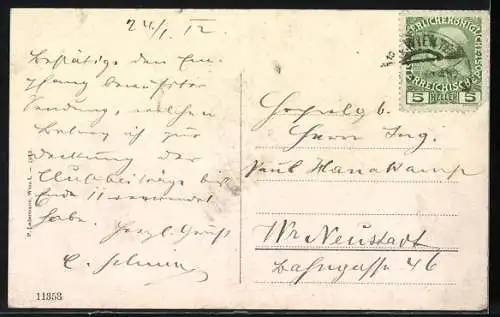 24/1. 12
Bestätige den Em-
pfang
Sendung, welchen
Betrag ich zur
deckung der
Clubbeiträge bis
Ende 11 verwendet
habe.
Herzl. Gruß
Hochwlg b.
Herrn Ing.
Paul Hanakamp
Wr Neustadt
Bahngasse 46
WIEN
5 HELLER 5
P. Ledermann, Wien I.
11353